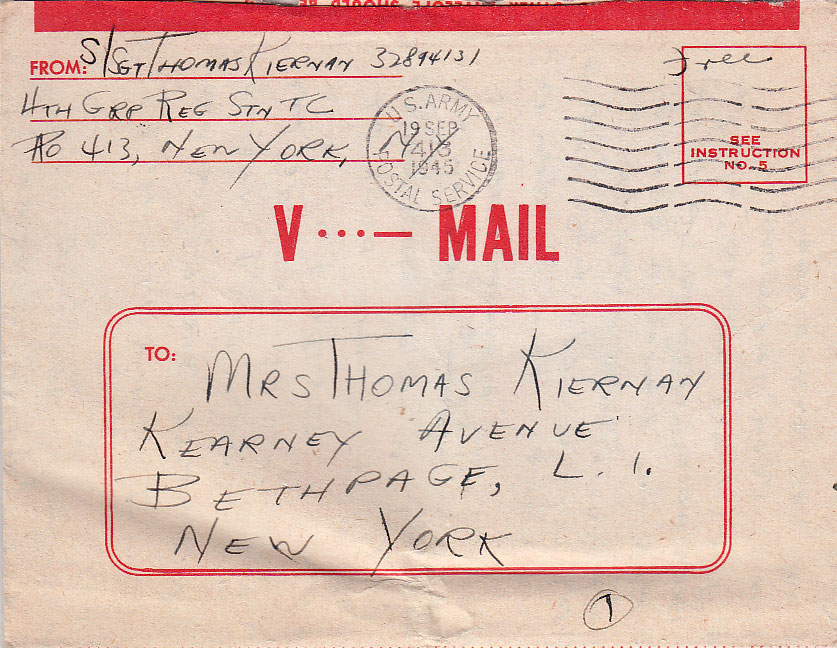 FROM: S/SGT THOMAS KIERNAN 32894131
4TH GRP REG STN TC
APO 413, NEW YORK, NY
U.S. ARMY
19 SEP
413
1945
POSTAL SERVICE
Free
SEE
INSTRUCTION
NO. 5
V ···— MAIL
TO:
MRS THOMAS KIERNAN
KEARNEY AVENUE
BETHPAGE, L. I.
NEW YORK
1